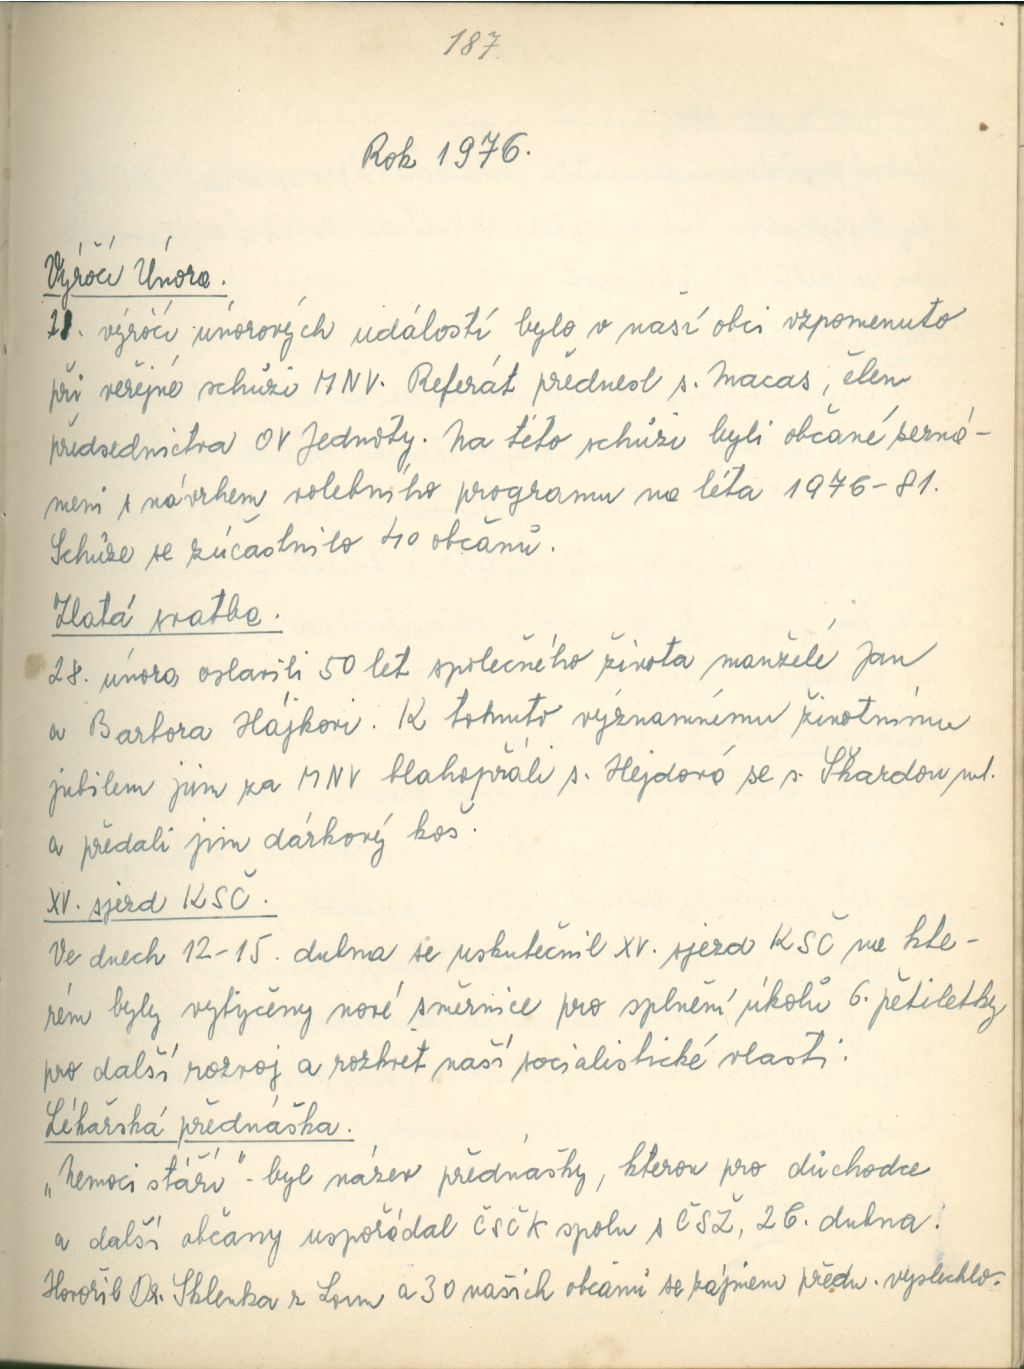 187
Rok 1976.
Výročí Února.
28. výročí únorových událostí bylo v naší obci vzpomenuto
při veřejné schůzi MNV. Referát přednesl s. Macas, člen
předsednictva OV Jednoty. Na této schůzi byli občané sezná-
meni s návrhem volebního programu na léta 1976-81.
Schůze se zúčastnilo 40 občanů.
Zlatá svatba.
28. února oslavili 50 let společného života manželé Jan
a Barbora Hájkovi. K tohuto významnému životnímu
jubilem jim za MNV blahopřáli s. Hejdová se s. Škardou ml.
a předali jim dárkový koš.
XV. sjezd KSČ.
Ve dnech 12-15. dubna se uskutečnil XV. sjezd KSČ na kte-
rém byly vytyčeny nové směrnice pro splnění úkolů 6. pětiletky
pro další rozvoj a rozkvět naší socialistické vlasti.
Lékařská přednáška.
„Nemoci stáří" - byl název přednášky, kterou pro důchodce
a další občany uspořádal ČSČK spolu s ČSŽ, 26. dubna.
Hovořil Dr. Sklenka z Lomu a 30 našich občanů se zájmem předn. vyslechlo.